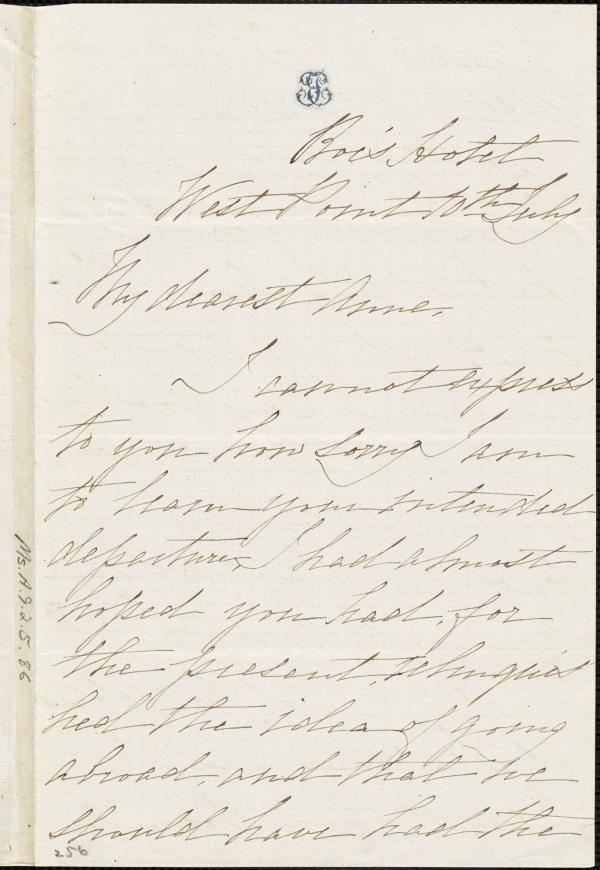 Roe's Hotel
West Point 10th July
My dearest Anne,
I cannot express
to you how sorry I am
to learn your intended
departure, I had almost
hoped you had, for
the present, relinquis
hed the idea of going
abroad, and that we
should have had the
Ms. A.9.2.5.86
256